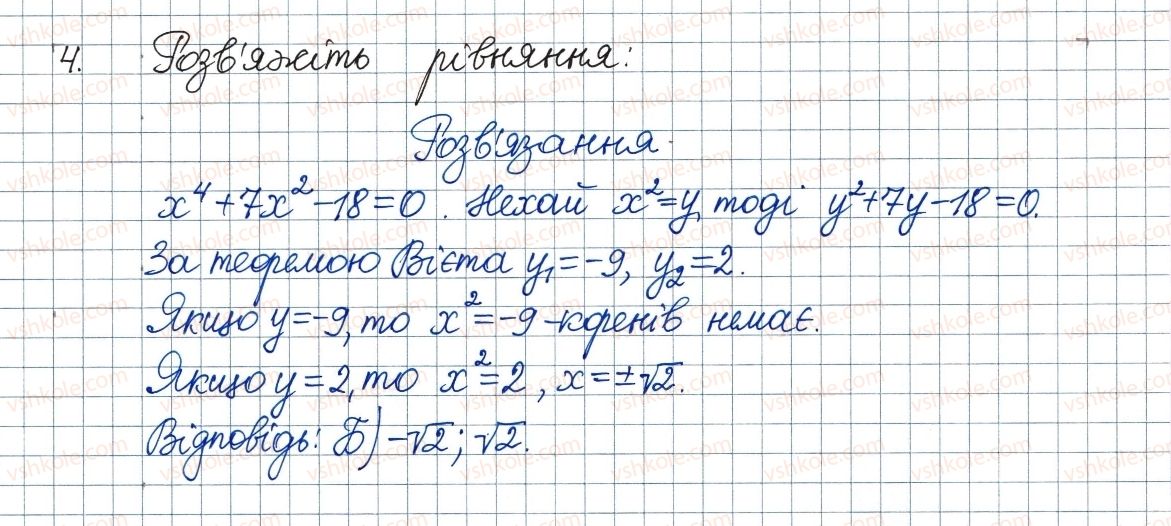 4. Розв'яжіть рівняння:
Розв'язання.
x⁴+7x²-18=0. Нехай x²=y, тоді y²+7y-18=0.
За теоремою Вієта y₁=-9, y₂=2.
Якщо y=-9, то x²=-9 - коренів немає.
Якщо y=2, то x²=2, x=±√2.
Відповідь: Б) -√2; √2.